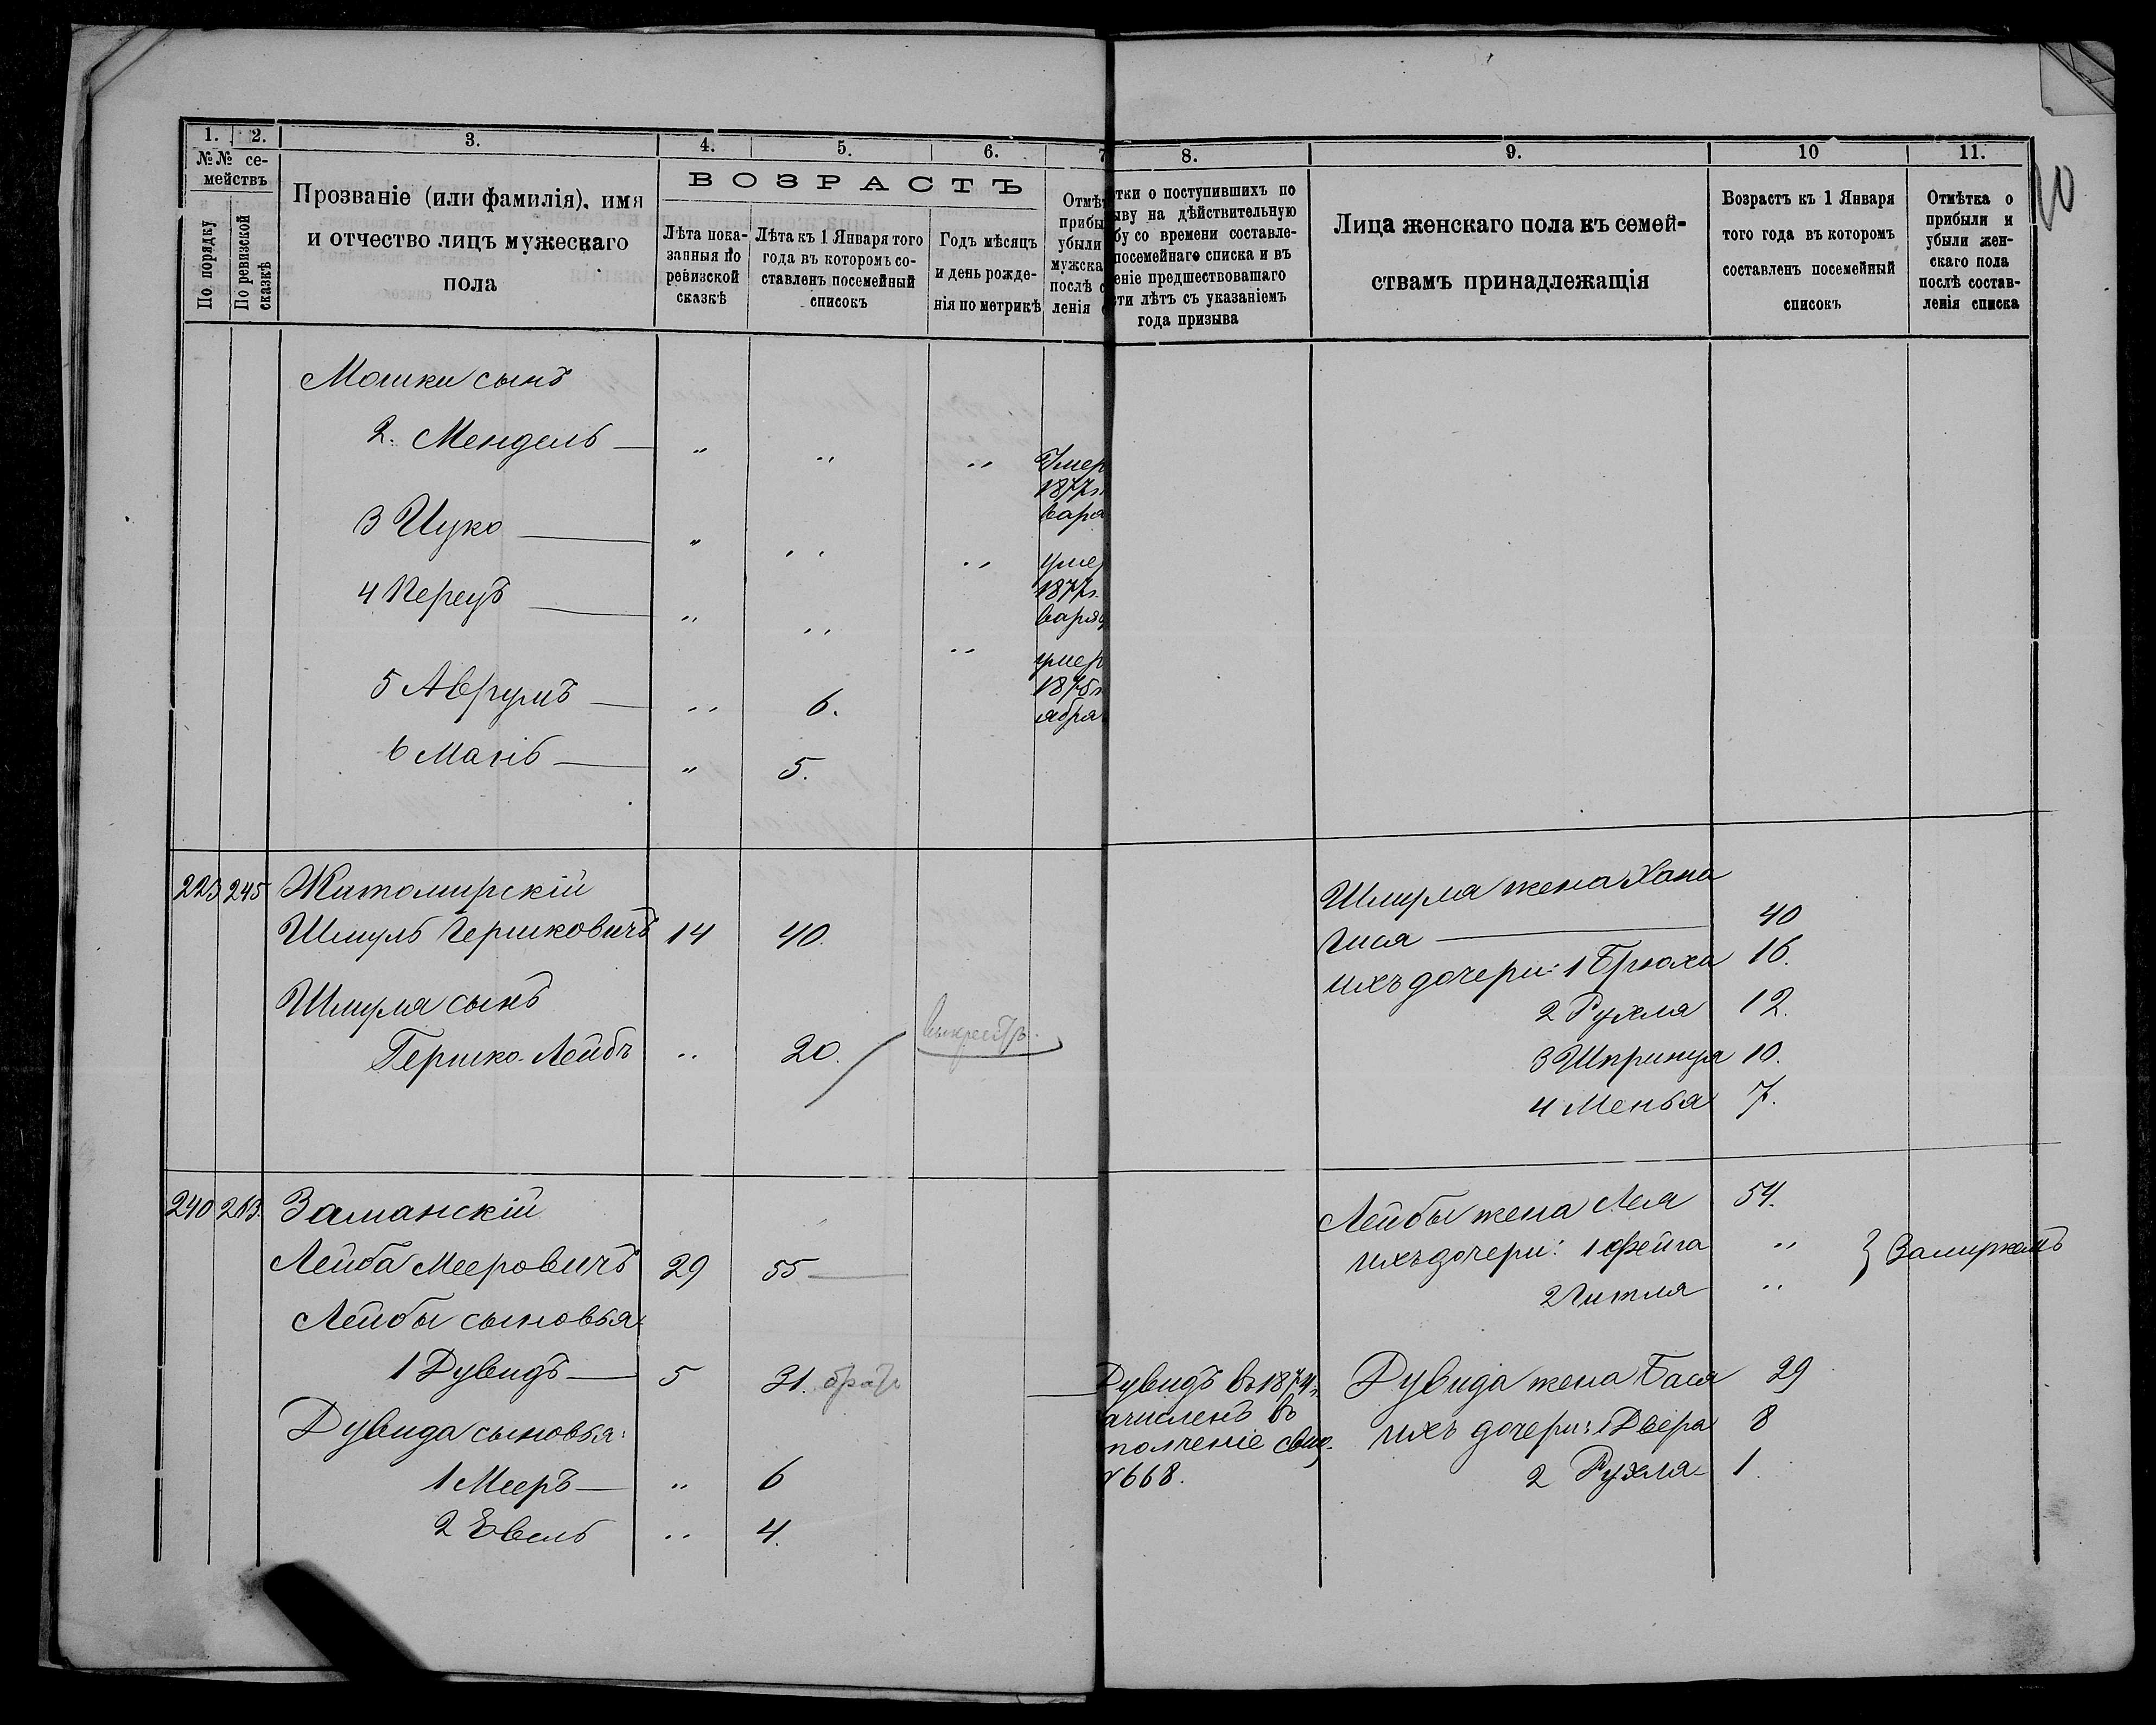 1. 2. 3. 4. 5. 6. 7 8. 9. 10 11.
№№ се-
мействъ
По порядку
По ревизской
сказкѣ
Прозваніе (или фамилія), имя
и отчество лицъ мужескаго
пола
ВОЗРАСТЪ
Лѣта пока-
занныя по
ревизской
сказкѣ
Лѣта къ 1 Января того
года въ которомъ со-
ставленъ посемейный
списокъ
Годъ мѣсяцъ
и день рожде-
нія по метрикѣ
Отмѣт
прибы
убыли
мужска
послѣ с
ленія с
тки о поступившихъ по
ыву на дѣйствительную
бу со времени составле-
посемейнаго списка и въ
еніе предшествовашаго
сти лѣтъ съ указаніемъ
года призыва
Лица женскаго пола къ семей-
ствамъ принадлежащія
Возрастъ къ 1 Января
того года въ которомъ
составленъ посемейный
списокъ
Отмѣтка о
прибыли и
убыли жен-
скаго пола
послѣ состав-
ленія списка
Мошки сынъ
2. Мендель — " " "
Умер
1877г
варя
3 Ицко — " " "
умер
1877г.
варя
4 Перецъ — " " "
умер
187
ября
5 Аврумъ — " 6.
6 — " 5.
223 245 Житомирскій
Шмуль Гершковичъ 14 40.
Шмуля сынъ
Гершко-Лейбъ " 20. выкрестъ
Шмуля жена Хана
Гися — 40
ихъ дочери: 1 Брюха 16.
2 Рухля 12.
3 Шпринца 10.
4 Менья 7.
240 263. Заманскій
Лейба Мееровичъ 29 55 —
Лейбы сыновья:
1 Дувидъ — 5 31. братъ
Дувида сыновья:
1 Мееръ — " 6
2 Евель " 4.
Дувидъ въ 1874 г
ачисленъ въ
полченіе свид.
№ 668.
Лейбы жена Лея 54.
ихъ дочери: 1 Фейга "
2 Гитля "
} Замужемъ
Дувида жена Бася 29
ихъ дочери: 1 Двера 8
2 Рухля 1.